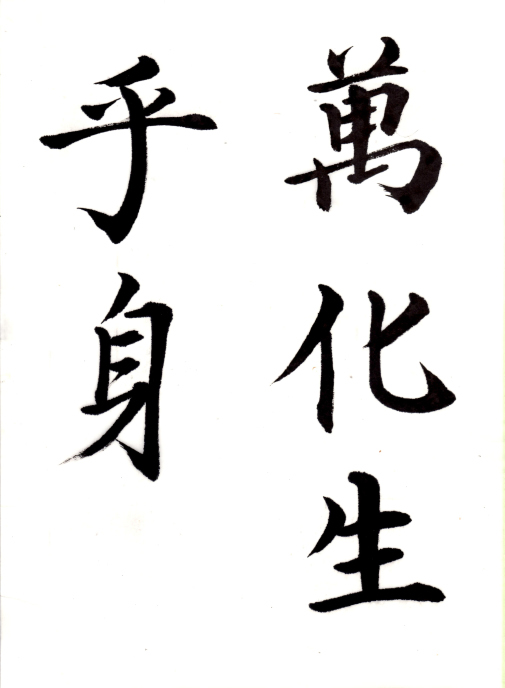 萬化生
乎身